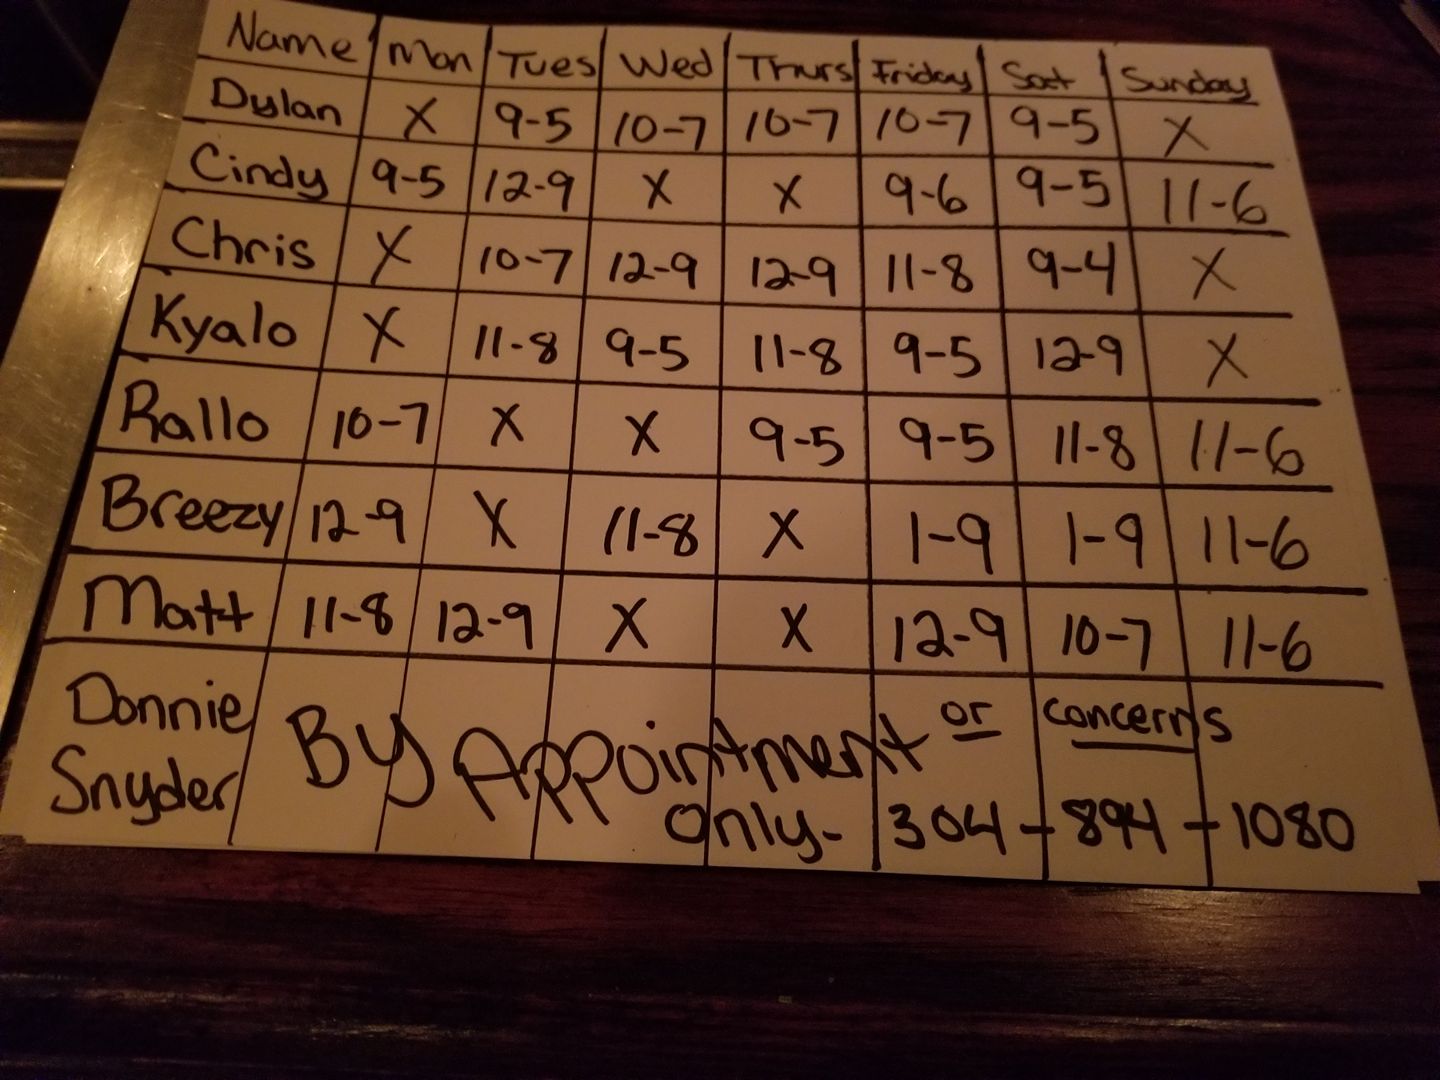 Name Mon Tues Wed Thurs Friday Sat Sunday
Dylan X 9-5 10-7 10-7 10-7 9-5 X
Cindy 9-5 12-9 X X 9-6 9-5 11-6
Chris X 10-7 12-9 12-9 11-8 9-4 X
Kyalo X 11-8 9-5 11-8 9-5 12-9 X
Rallo 10-7 X X 9-5 9-5 11-8 11-6
Breezy 12-9 X 11-8 X 1-9 1-9 11-6
Matt 11-8 12-9 X X 12-9 10-7 11-6
Donnie Snyder By Appointment or concerns
only- 304-894-1080